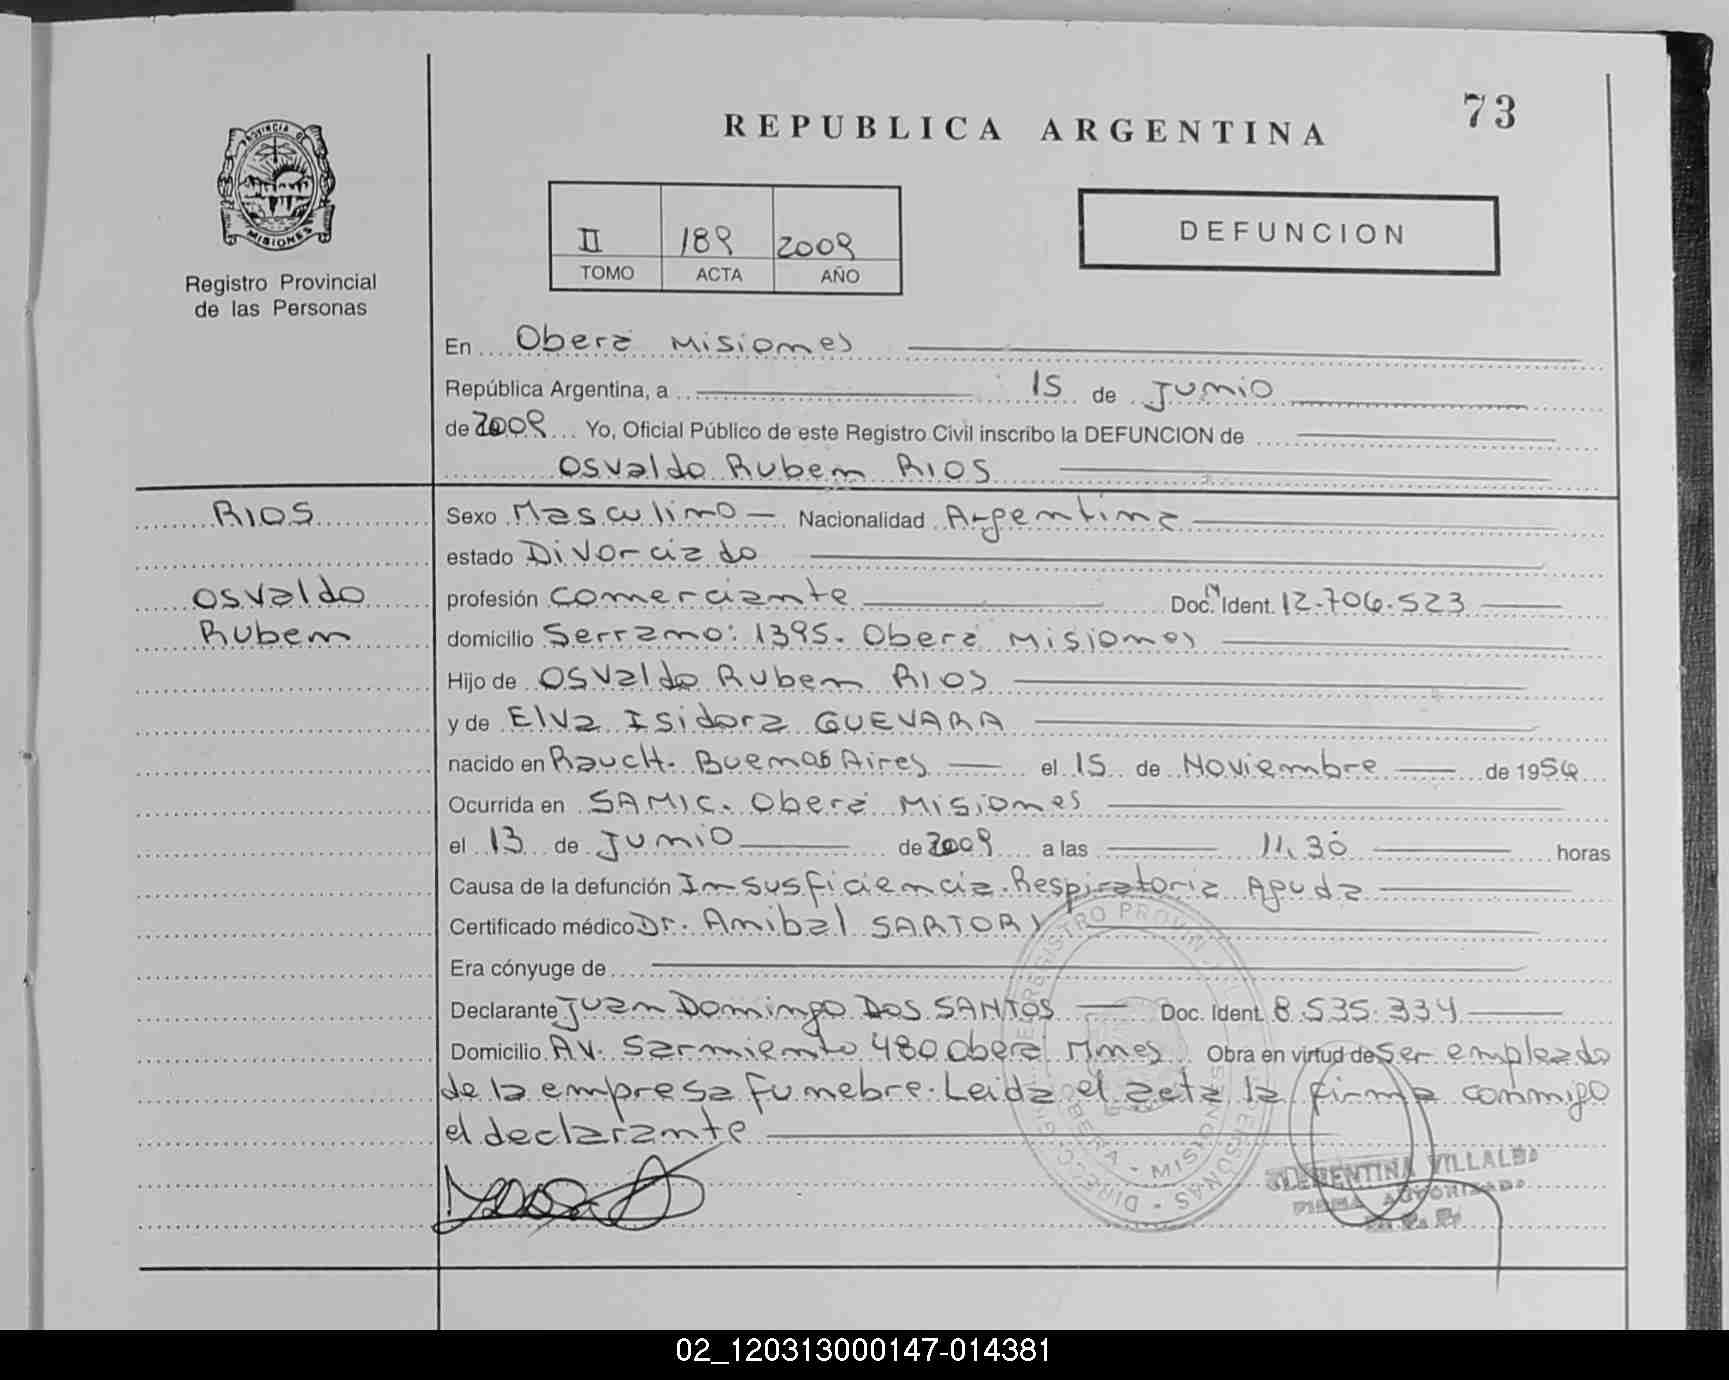 73
REPUBLICA ARGENTINA
PROVINCIA DE
MISIONES
Registro Provincial
de las Personas
II 189 2009
TOMO ACTA AÑO
DEFUNCION
En Oberá Misiones
República Argentina, a 15 de Junio
de 2009 Yo, Oficial Público de este Registro Civil inscribo la DEFUNCION de
Osvaldo Ruben RIOS
RIOS
Osvaldo
Ruben
Sexo Masculino — Nacionalidad Argentina
estado Divorciado
profesión Comerciante Doc. Ident. 12.706.523
domicilio Serrano: 1395. Oberá Misiones
Hijo de Osvaldo Ruben RIOS
y de Elva Isidora GUEVARA
nacido en Rauch. Buenos Aires — el 15 de Noviembre — de 1956
Ocurrida en SAMIC. Oberá Misiones
el 13 de Junio de 2009 a las 11.30 horas
Causa de la defunción Insusficiencia Respiratoria Aguda
Certificado médico Dr. Anibal SARTORI
Era cónyuge de
Declarante Juan Domingo DOS SANTOS — Doc. Ident. 8.535.334
Domicilio Av. Sarmiento 480 Oberá Mnes Obra en virtud de Ser empleado
de la empresa funebre. Leida el acta la firma conmigo
el declarante
OBERA - MISIONES
CLEMENTINA VILLALBA
FIRMA AUTORIZADA
02_120313000147-014381